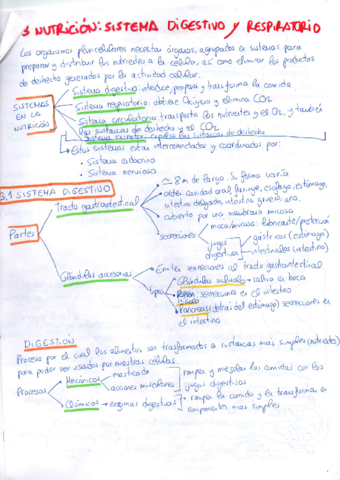 3 NUTRICIÓN: SISTEMA DIGESTIVO Y RESPIRATORIO
Los organismos pluricelulares necesitan órganos, agrupados en sistemas para
preparar y distribuir los nutrientes a la célula, así como eliminar los productos
de desecho generados por la actividad celular.
SISTEMAS EN LA NUTRICIÓN
Sistema digestivo: introduce, prepara y transforma la comida
Sistema respiratorio: obtiene Oxígeno y elimina CO2
Sistema circulatorio: transporta los nutrientes y el O2, y también
las sustancias de desecho y el CO2
Sistema excretor: expulsa las sustancias de desecho
Estos sistemas están interconectados y coordinados por:
• Sistema endocrino
• Sistema nervioso
3.1 SISTEMA DIGESTIVO
Partes
Tracto gastrointestinal
8 m de largo. Su forma varía
orden: cavidad oral, faringe, esófago, estómago,
intestino delgado, intestino grueso, ano.
cubierto por una membrana mucosa
secreciones
moco/mucosa: lubricante/protección
jugos digestivos
gástricos (estómago)
intestinales (intestino)
Glándulas accesorias
Emiten secreciones al tracto gastrointestinal
tipos
Glándulas salivales → saliva en boca
Hígado: secreciones en el intestino
Páncreas (detrás del estómago) secreciones en
el intestino
DIGESTIÓN
Proceso por el cual los alimentos son transformados a sustancias más simples (nutrientes)
para poder ser usados por nuestras células.
Procesos
Mecánicos
masticado
acciones musculares
rompen y mezclan las comidas con los
jugos digestivos
Químicos → enzimas digestivas
rompen la comida y la transforman en
componentes más simples